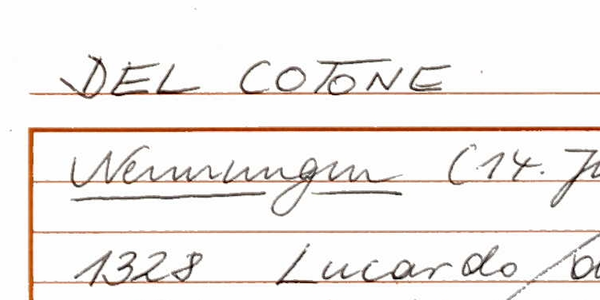 DEL COTONE
Nennungen (14. J
1328 Lucardo